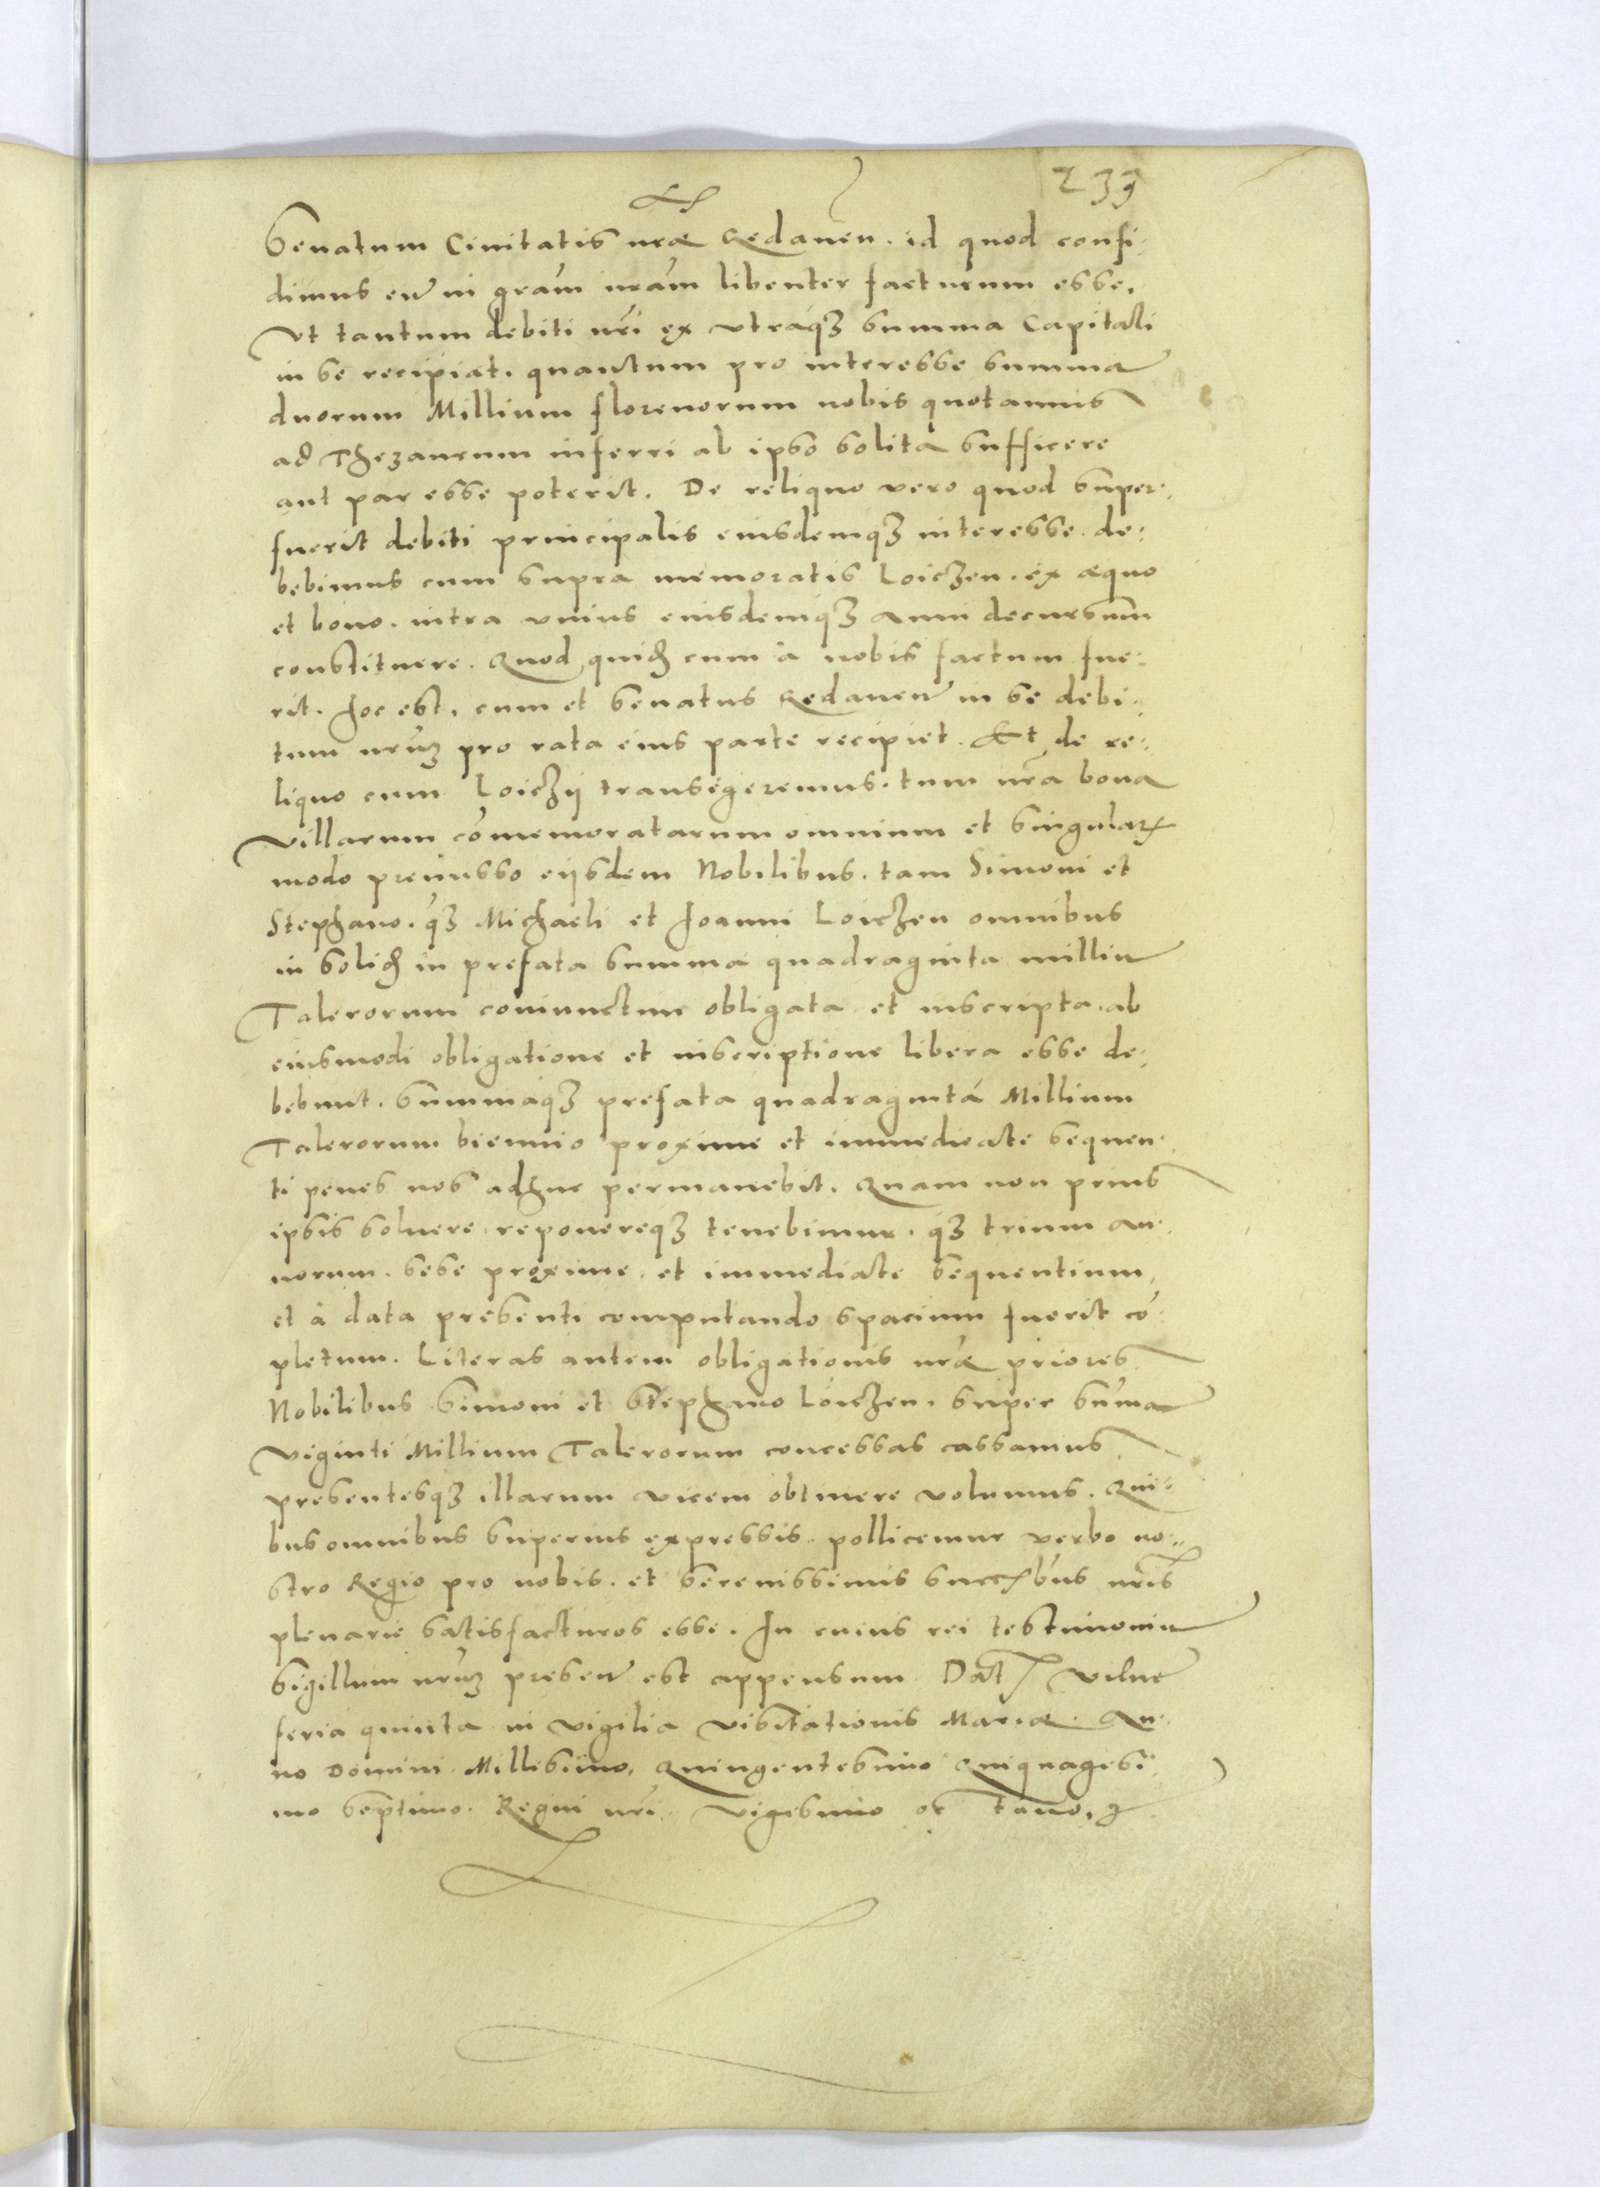 233
Senatum Ciuitatis nr̃æ Gedaneñ. id quod confi-
dimus eũ in gr̃am nr̃am libenter facturum esse,
Vt tantum debiti nr̃i ex vtraqꝫ summa Capitali
in se recipiat, quantum pro interesse summæ
duorum Millium florenorum nobis quotannis
ad Thezaurum inferri ab ipso solita sufficere
aut par esse poterit. De reliquo vero quod super-
fuerit debiti principalis eiusdemqꝫ interesse. de-
bebimus cum supra memoratis Loiczen. ex æquo
et bono. intra vnius eiusdemqꝫ Anni decursum
constituere. Quod quidẽ cum à nobis factum fue-
rit. hoc est, cum et Senatus Gedaneñ in se debi-
tum nr̃uꝫ pro rata eius parte recipiet. Et de re-
liquo cum Loiczij transegeremus. tum nr̃a bona
Villarum cõmemoratarum omnium et singulaꝝ
modo premisso eijsdem Nobilibus. tam Simoni et
Stephano. qꝫ Michaeli et Joanni Loiczen omnibus
in solidũ in prefata summa quadraginta milliũ
Talerorum coniunctim obligata et inscripta. ab
eiusmodi obligatione et inscriptione libera esse de-
bebunt. Summaqꝫ prefata quadraginta Millium
Talerorum biennio proxime et immediate sequen-
ti penes nos adhuc permanebit. Quam non prius
ipsis soluere reponereqꝫ tenebimur. qꝫ trium An-
norum. sese proxime. et immediate sequentium,
et à data presenti computando spacium fuerit cõ-
pletum. Literas autem obligationis nr̃æ priores
Nobilibus Simoni et Stephano Loiczen. super sum̃a
Viginti Millium Talerorum concessas cassamus
presentesqꝫ illarum vicem obtinere volumus. Qui-
bus omnibus superius expressis. pollicemur verbo no-
stro Regio pro nobis. et Serenissimis succꝭbus nr̃is
plenarie satisfacturos esse. In cuius rei testimoniũ
Sigillum nr̃uꝫ preseñ est appensum. Datꝭ Vilnæ
feria quinta in vigilia visitationis Mariæ. An-
no Domini Millesimo, Quingentesimo Quiquagesi-
mo septimo. Regni nr̃i Vigesimo octauo.